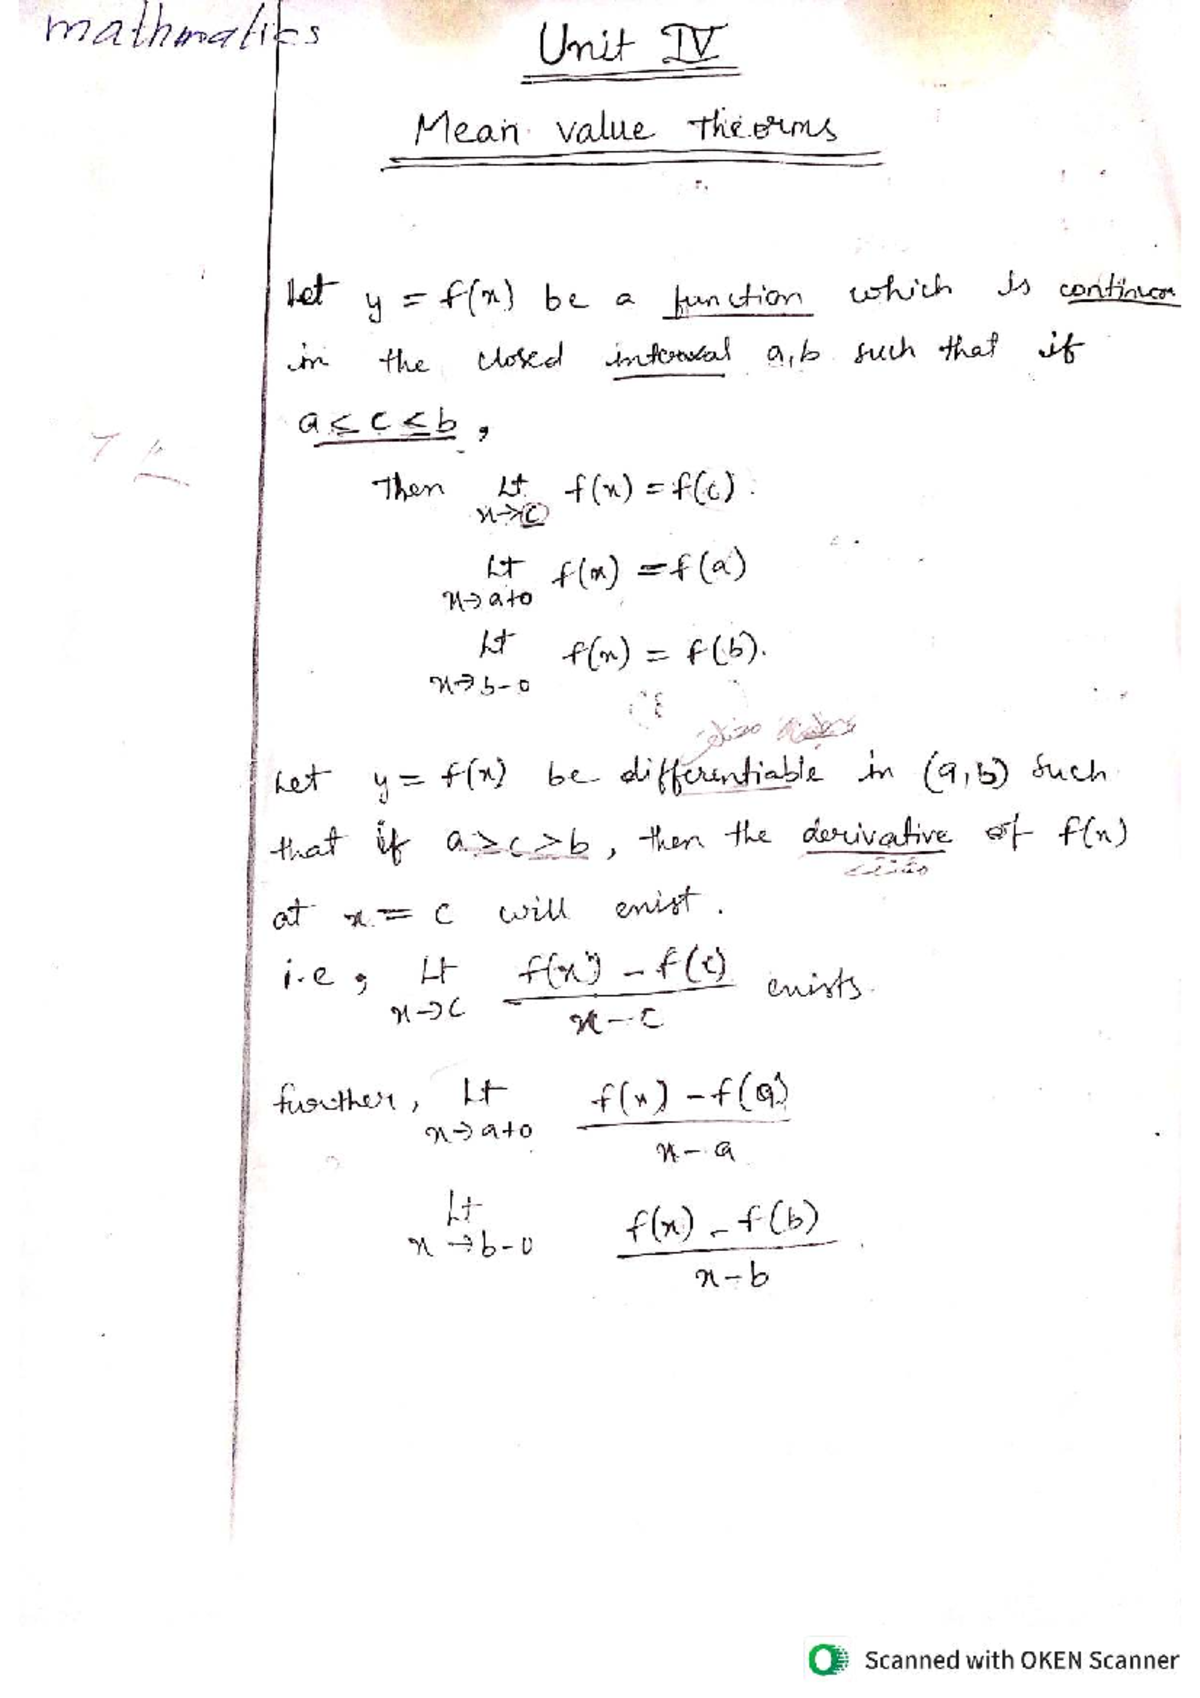 mathmatics
Unit IV
Mean value Theorms
Let y = f(x) be a function which is continuou
in the closed interval a,b such that if
a ≤ c ≤ b,
Then Lt f(x) = f(c).
x→c
Lt f(x) = f(a)
x→a+0
Lt f(x) = f(b).
x→b-0
Let y = f(x) be differentiable in (a,b) such
that if a ≥ c ≥ b, then the derivative of f(x)
مشتقة
at x = c will exist.
i.e, Lt f(x) - f(c) exists.
x→c x - c
further, Lt f(x) - f(a)
x→a+0 x - a
Lt f(x) - f(b)
x→b-0 x - b
Scanned with OKEN Scanner